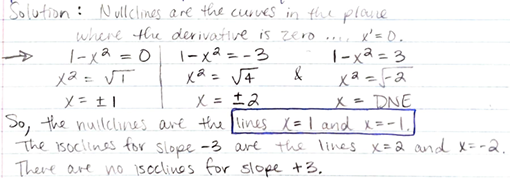 Solution: Nullclines are the curves in the plane
where the derivative is zero .... x'=0.
→ 1-x² = 0 | 1-x² = -3 1-x² = 3
x² = √1 | x² = √4 & x² = √-2
x = ±1 | x = ±2 x = DNE
So, the nullclines are the lines x=1 and x=-1.
The isoclines for slope -3 are the lines x=2 and x=-2.
There are no isoclines for slope +3.